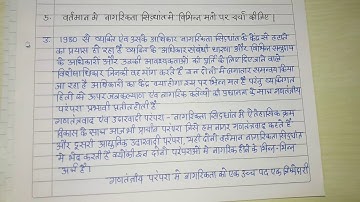 5. वर्तमान में नागरिकता सिद्धांत में विभिन्न मतों पर चर्चा कीजिए।
उ. 1980 से व्यक्ति एवं उसके अधिकार नागरिकता सिद्धांत के केंद्र से हटाने
का प्रयास हो रहा है व्यक्ति के अधिकार संबंधी धारणा और विभिन्न समुदाय
के अधिकारों और उनकी आवश्यकताओं की पूर्ति के लिए दिए जाने वाले
विशेषाधिकार जिनकी वह मांग करते हैं उन दोनों में लगातार समन्वय किया
जा रहा है अधिकारों का केंद्र क्या होगा उस पर भिन्न मत है परंतु व्यक्तिगत
हितों के ऊपर जनकल्याण एवं नागरिक कर्तव्यों की प्रधानता के साथ गणतंत्रीय
परंपरा प्रभावी प्रतीत होती है
गणतंत्रवाद एवं उदारवादी परंपरा - नागरिकता सिद्धांत में ऐतिहासिक क्रम
विकास के साथ आज भी प्राचीन परंपरा जिसे हम नागर गणतंत्रवाद कहते हैं
और दूसरी आधुनिक उदारवादी परंपरा, यही दोनों वर्तमान नागरिकता सिद्धांत
में भेद करती है क्योंकि इन दोनों परंपराओं में नागरिक होने के भिन्न-भिन्न
अर्थ हैं।
गणतंत्रीय परंपरा में नागरिकता को एक उच्च पद एक जिम्मेदारी